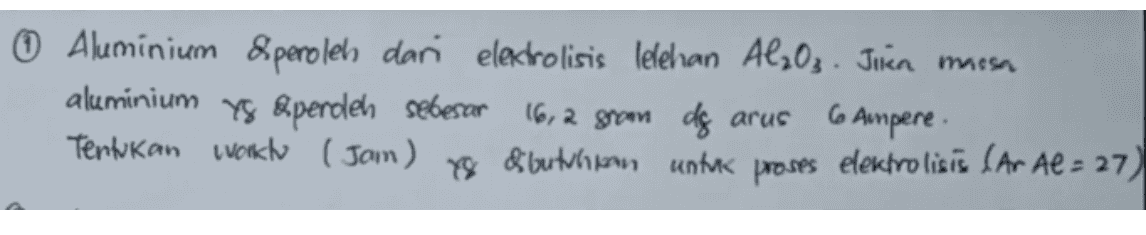 ① Aluminium diperoleh dari elektrolisis lelehan Al₂O₃. Jika massa
aluminium yg diperoleh sebesar 16,2 gram dg arus 6 Ampere.
Tentukan waktu (Jam) yg dibutuhkan untuk proses elektrolisis (Ar Al = 27)